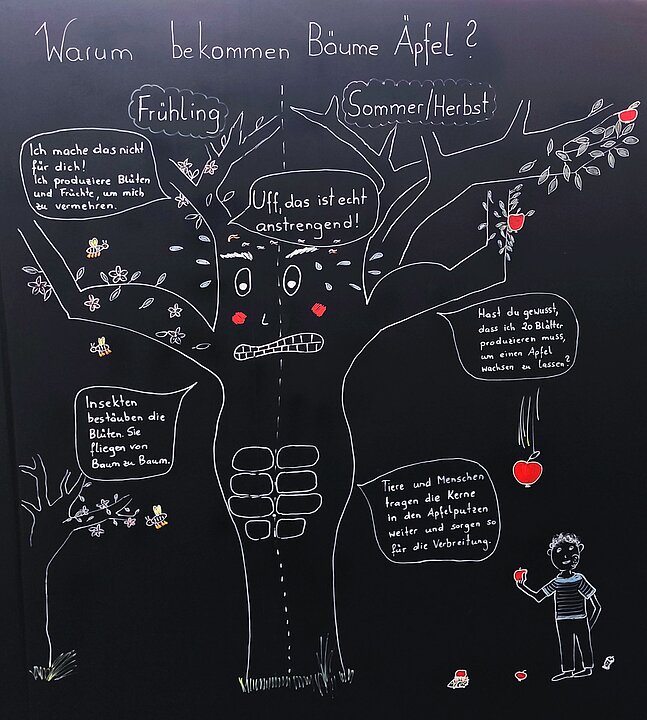 Warum bekommen Bäume Äpfel?
Frühling
Sommer/Herbst
Ich mache das nicht
für dich!
Ich produziere Blüten
und Früchte, um mich
zu vermehren.
Uff, das ist echt
anstrengend!
Hast du gewusst,
dass ich 20 Blätter
produzieren muss,
um einen Apfel
wachsen zu lassen?
Insekten
bestäuben die
Blüten. Sie
fliegen von
Baum zu Baum.
Tiere und Menschen
tragen die Kerne
in den Apfelputzen
weiter und sorgen so
für die Verbreitung.